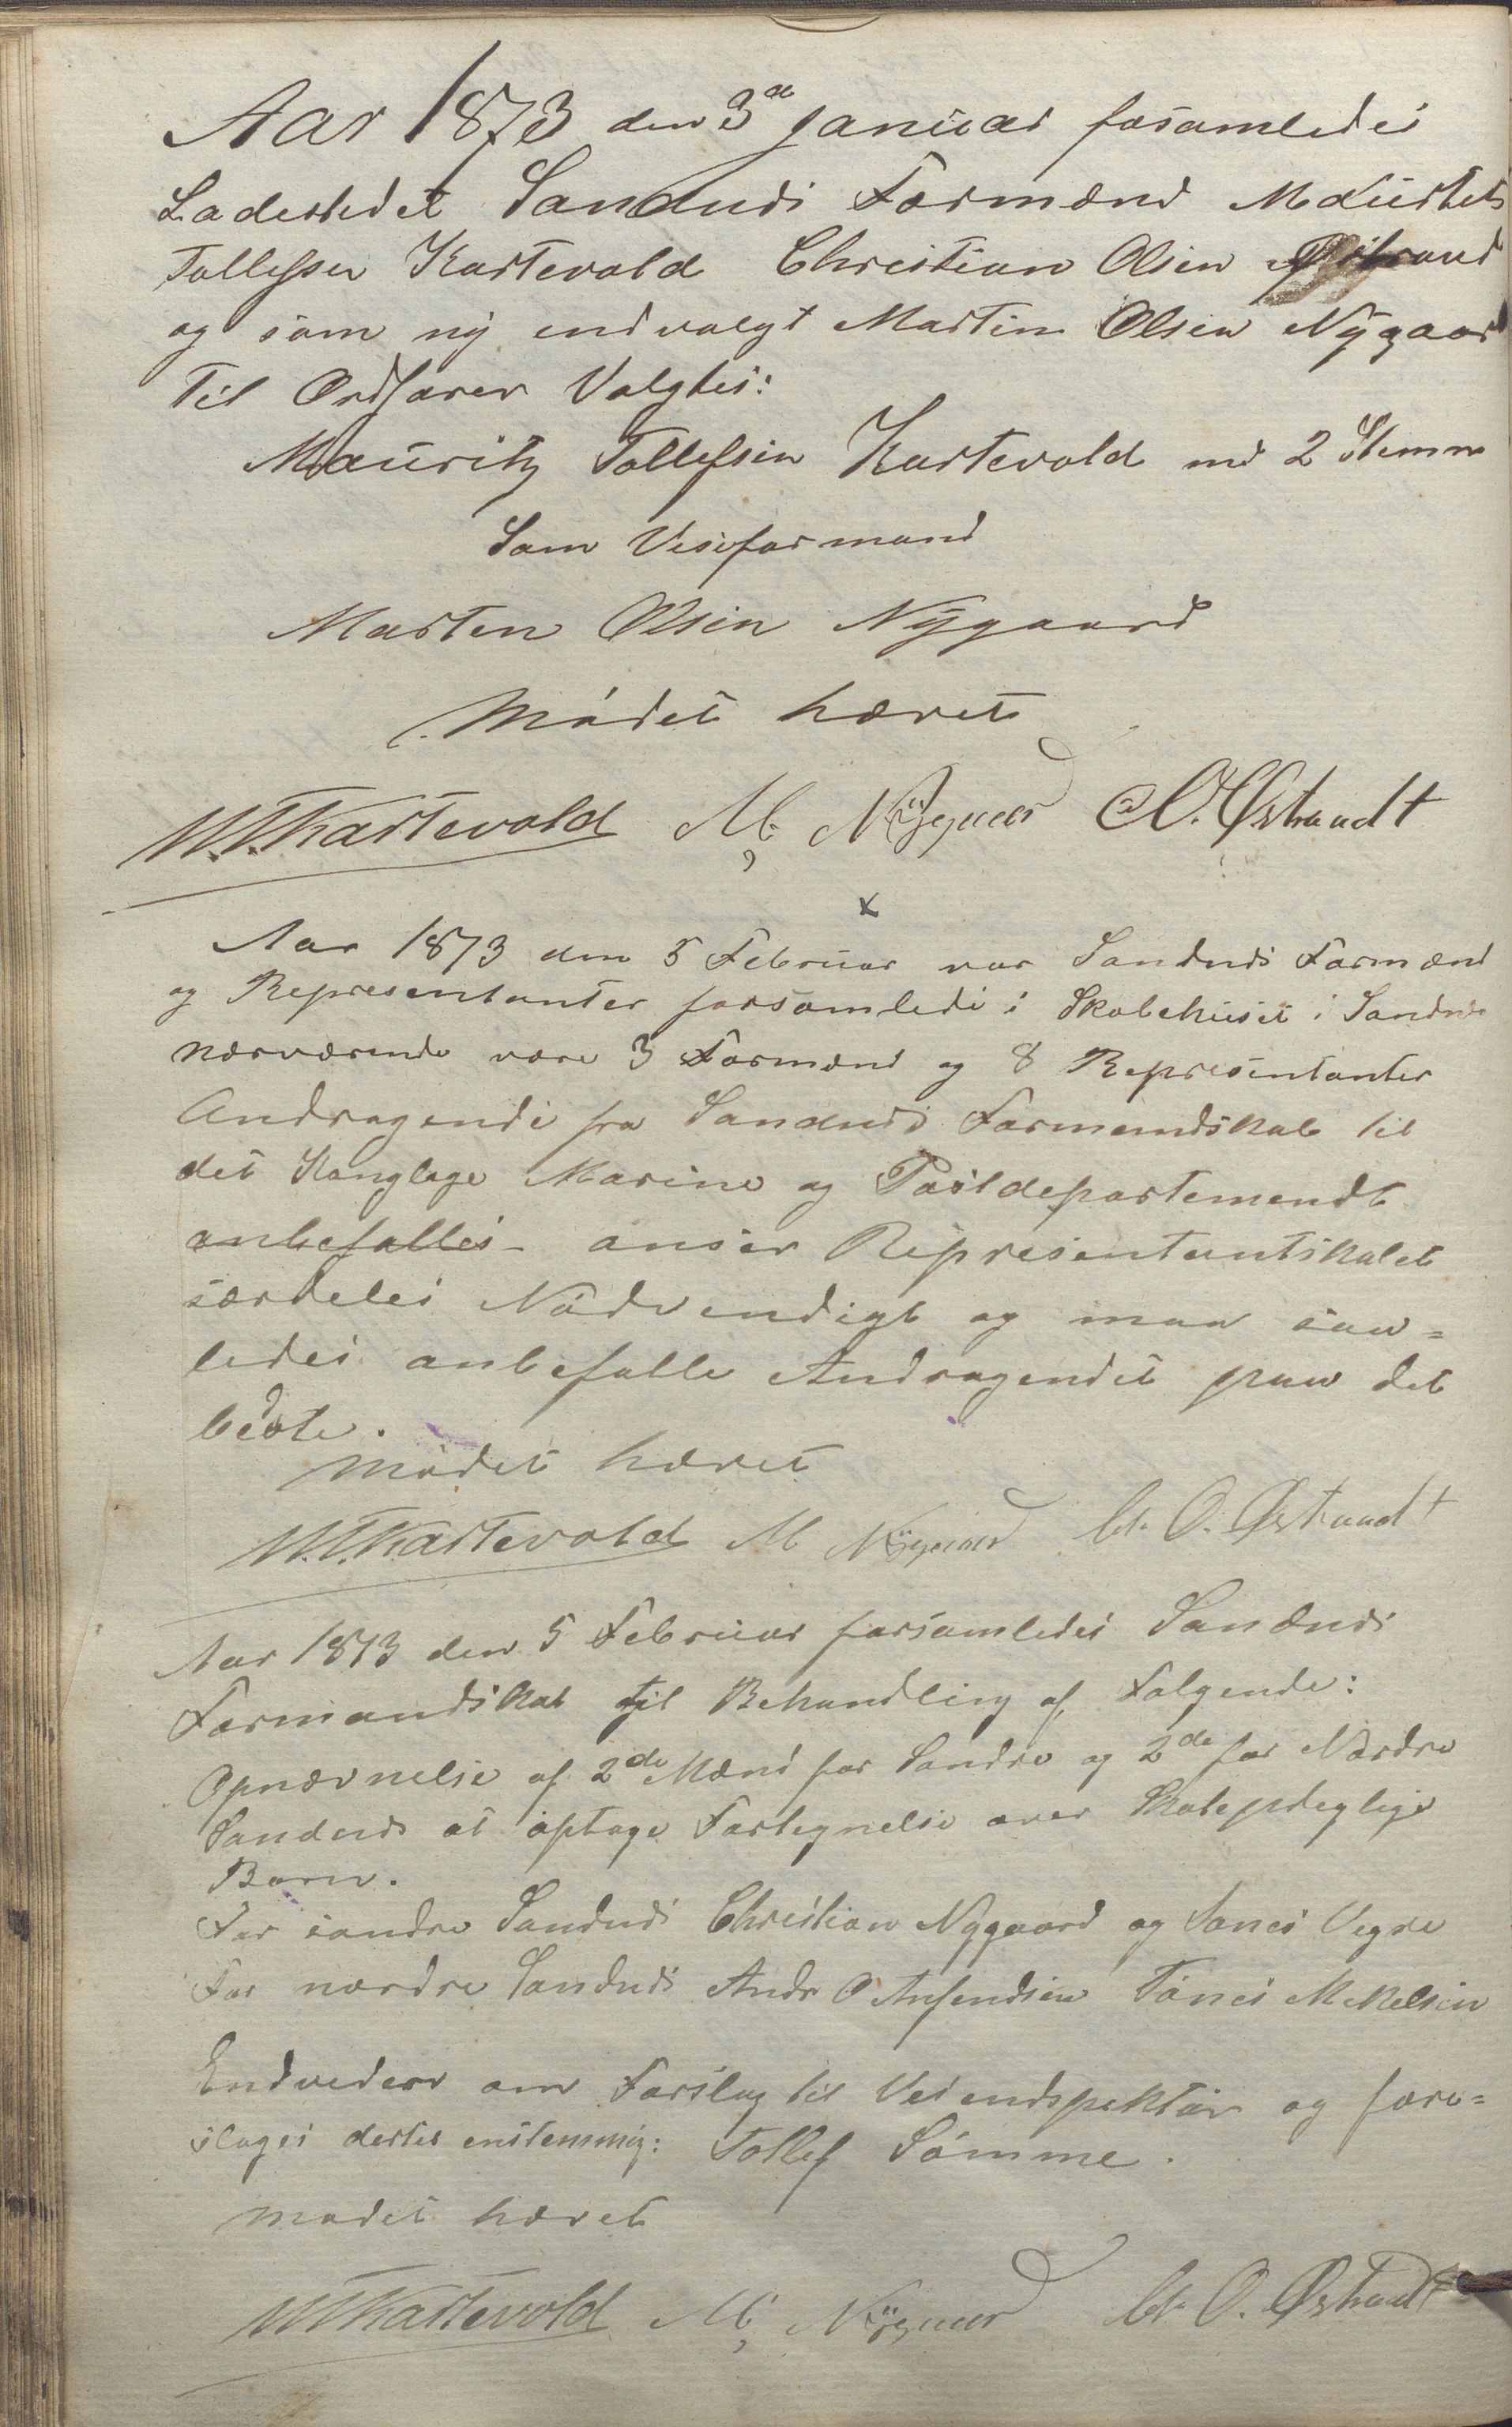 Aar 1873 den 3de Januar forsamledes
Ladestedet Sandnes Formænd Mauritz
Tollefsen Kastevold Christian Olsen Østrand
og som ny indvalgt Martin Olsen Nygaard
Til Ordfører Valgtes:
Mauritz Tollefsen Kastevold md 2 Stemme
Som Viseformand
Marten Olsen Nygaard
Mödet hævet
M.T.Kastevold M. Nÿgaard C. O. Østraadt
x
Aar 1873 den 5 Februar var Sandnes Formænd
og Representanter forsamlede i Skolehuset i Sandnes
nærværende være 3 Formænd og 8 Representanter
Andragende fra Sandnes Formandskab til
det Konglige Marine og Postdepartemendt
anbefalles- anser Representantskabet
særdeles Nödvendigt og man saa=
ledes anbefalle Andragendet paa det
bedste.
mödet hævet
M.T.Kastevold M Nÿgaard Ch. O. Østraadt
Aar 1873 den 5 Februar forsamledes Sandnes
Formandskab til Behandling af Følgende:
Opnævnelse af 2de Mænd for Søndre og 2de for Nordre
Sandnes at optage Fortegnelse over Skolepligtige
Børn.
For søndre Sandnes Christian Nygaard og Vegre
For nordre Sandnes Andr O Anfendsen Tönes Mikelsen
Endvedere om Forslag til Veiendspektör og fore=
slages dertil enstemmig: Tollef Sömme.
mødet hævet
M.T.Kastevold M. Nÿgaard Ch. O. Østraadt